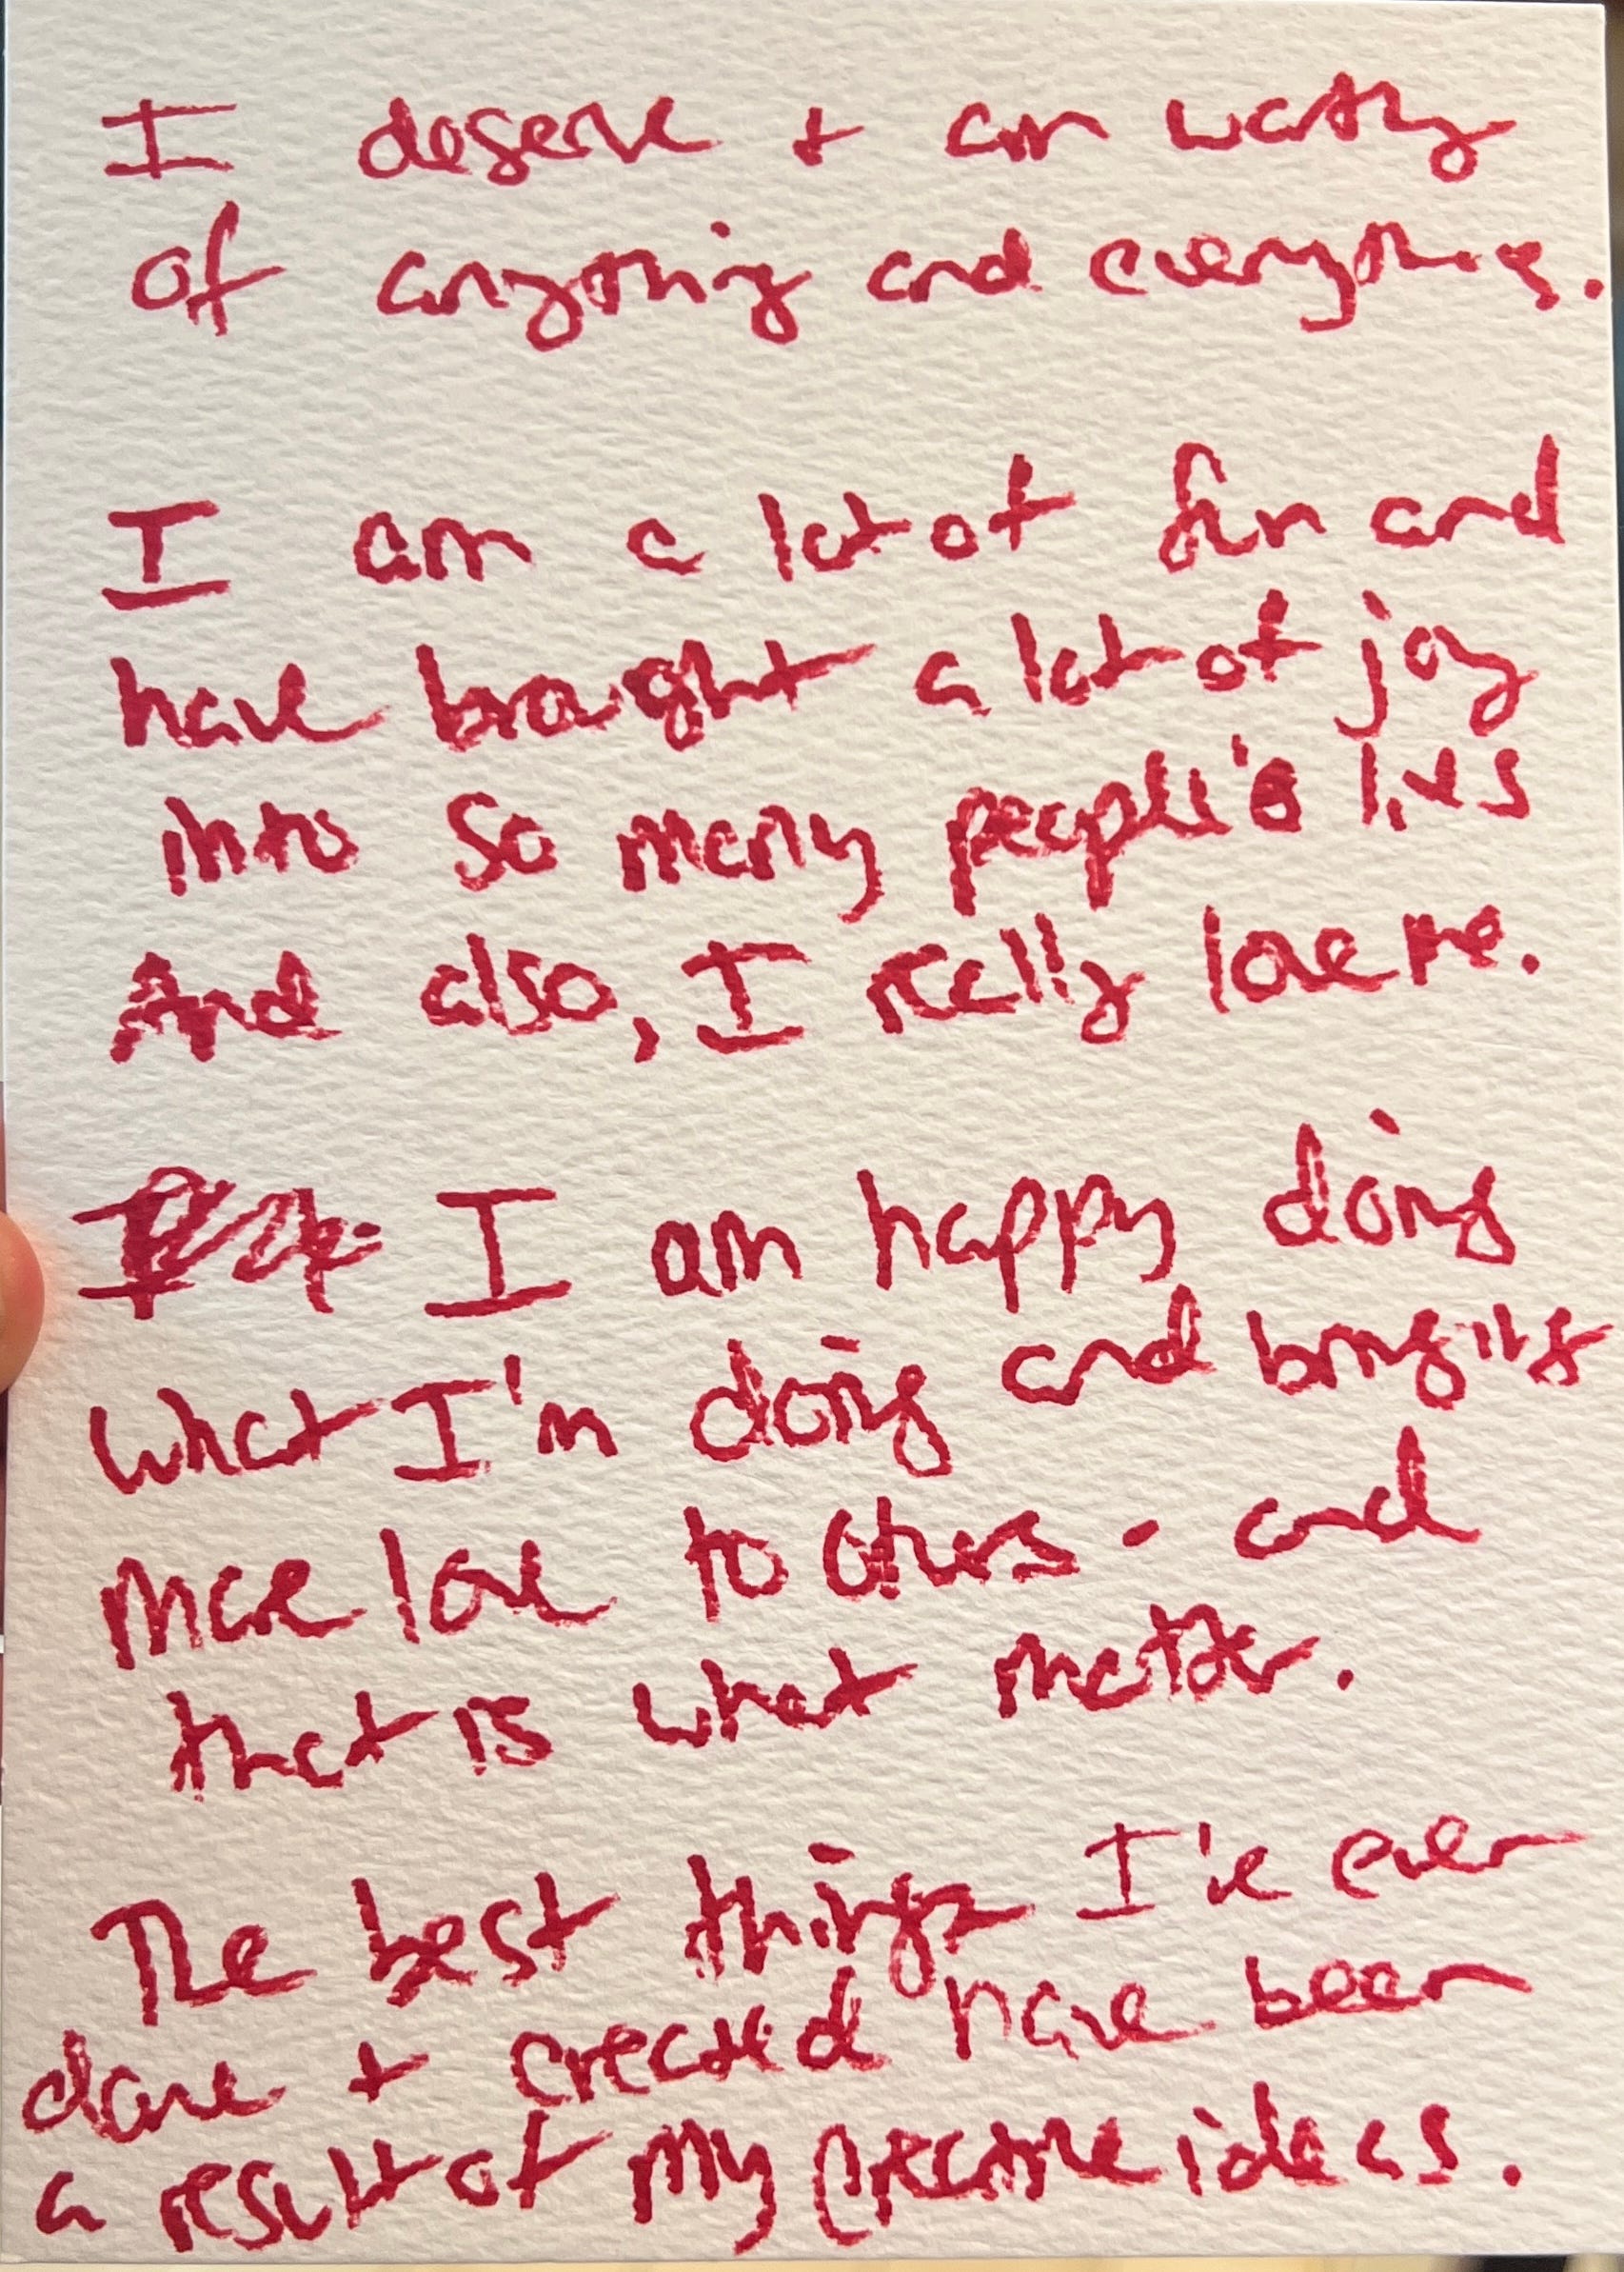 I deserve + am worthy
of anything and everything.
I am a lot of fun and
have brought a lot of joy
into so many people's lives
And also, I really love me.
I am happy doing
what I'm doing and bringing
more love to others - and
that is what matter.
The best things I've ever
done + created have been
a result of my creative ideas.